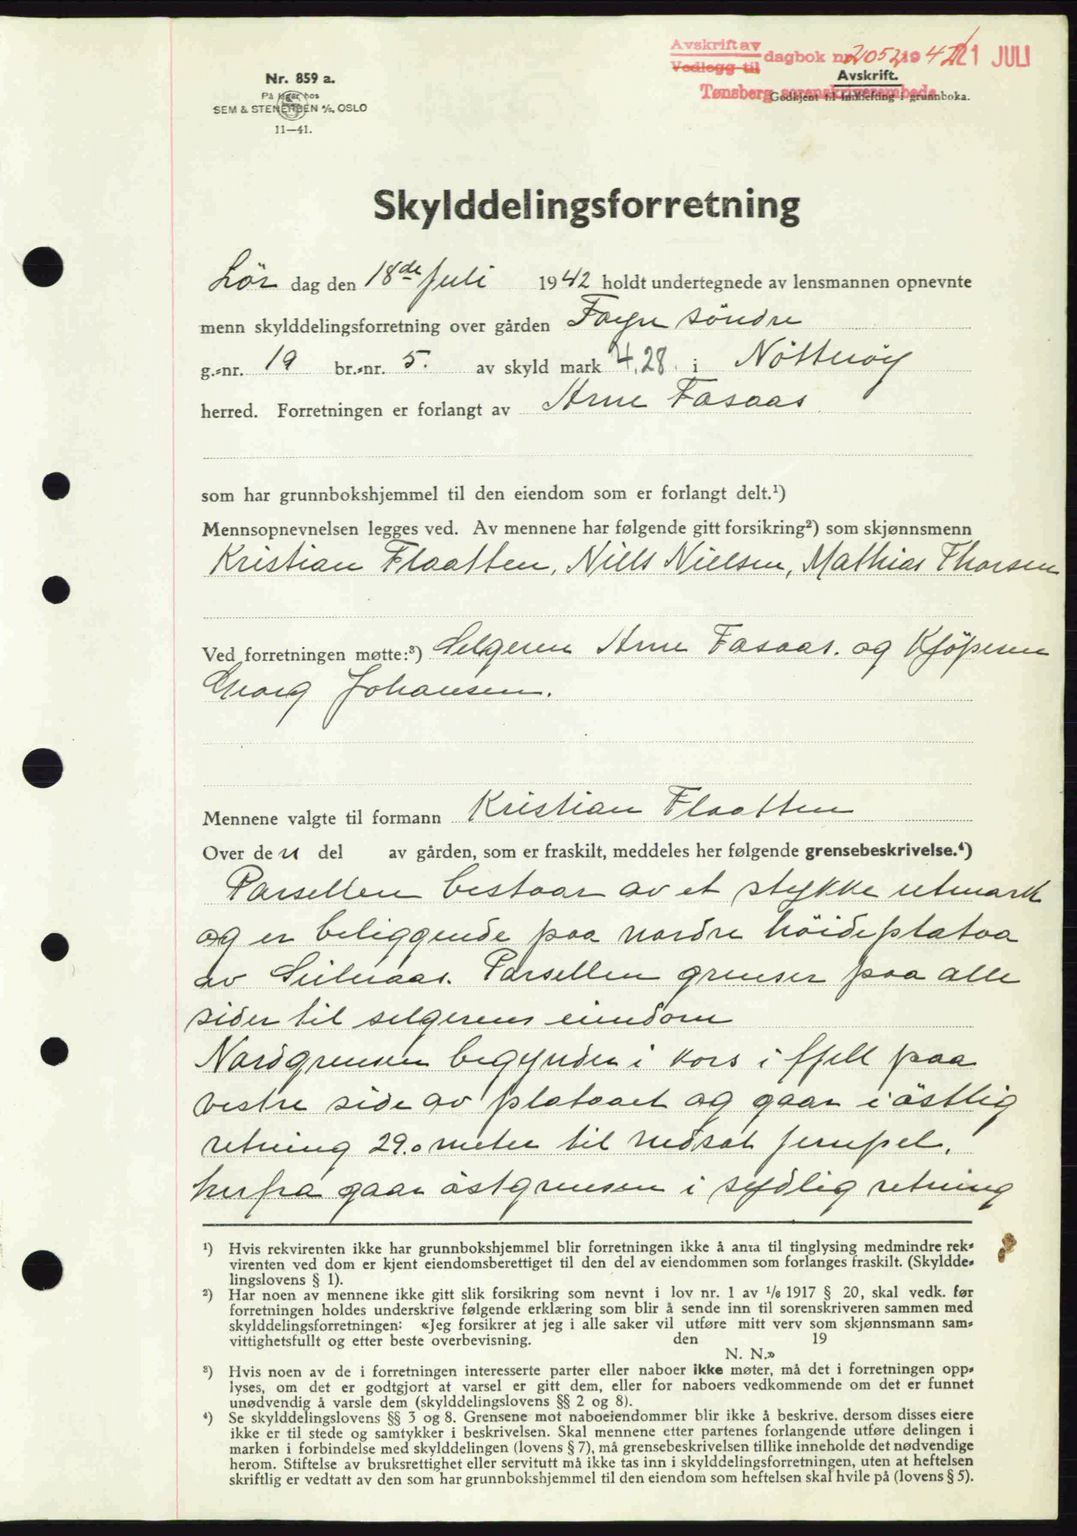 Avskrift av
Vedlegg til
dagbok nr. 2052 1942 21 JULI
Tønsberg sorenskriverembede
Avskrift.
Godkjent til innhefting i grunnboka.
Nr. 859 a.
På lager hos
SEM & STENERSEN A/S, OSLO
11—41.
Skylddelingsforretning
Lör dag den 18de Juli 1942 holdt undertegnede av lensmannen opnevnte
menn skylddelingsforretning over gården Føyn söndre
g.-nr. 19 br.-nr. 5. av skyld mark 4,28. i Nötteröy
herred. Forretningen er forlangt av Arne Fasaas
som har grunnbokshjemmel til den eiendom som er forlangt delt.¹)
Mennsopnevnelsen legges ved. Av mennene har følgende gitt forsikring²) som skjønnsmenn
Kristian Flaatten, Niels Nielsen, Mathias Thorsen
Ved forretningen møtte:³) Selgeren Arne Fasaas. og Kjöperen
Georg Johansen.
Mennene valgte til formann Kristian Flaatten
Over den del av gården, som er fraskilt, meddeles her følgende grensebeskrivelse.⁴)
Parsellen bestaar av et stykke utmark
og er beliggende paa nordre höideplataa
av Sulnaas. Parsellen grenser paa alle
sider til selgerens eiendom
Nordgrensen begynder i kors i fjell paa
vestre side av plataaet og gaar i östlig
retning 29.0 meter til nedsat jernpel,
herfra gaar östgrensen i sydlig retning
¹) Hvis rekvirenten ikke har grunnbokshjemmel blir forretningen ikke å anta til tinglysing medmindre rek-
virenten ved dom er kjent eiendomsberettiget til den del av eiendommen som forlanges fraskilt. (Skyldde-
lingslovens § 1).
²) Har noen av mennene ikke gitt slik forsikring som nevnt i lov nr. 1 av 1/6 1917 § 20, skal vedk. før
forretningen holdes underskrive følgende erklæring som blir å sende inn til sorenskriveren sammen med
skylddelingsforretningen: «Jeg forsikrer at jeg i alle saker vil utføre mitt verv som skjønnsmann sam-
vittighetsfullt og etter beste overbevisning. den 19
N. N.»
³) Hvis noen av de i forretningen interesserte parter eller naboer ikke møter, må det i forretningen opp-
lyses, om det er godtgjort at varsel er gitt dem, eller for naboers vedkommende om det er funnet
unødvendig å varsle dem (skylddelingslovens §§ 2 og 8).
⁴) Se skylddelingslovens §§ 3 og 8. Grensene mot naboeiendommer blir ikke å beskrive, dersom disses eiere
ikke er til stede og samtykker i beskrivelsen. Skal mennene etter partenes forlangende utføre delingen i
marken i forbindelse med skylddelingen (lovens § 7), må grensebeskrivelsen tillike inneholde det nødvendige
herom. Stiftelse av bruksrettighet eller servitutt må ikke tas inn i skylddelingsforretningen, uten at heftelsen
skriftlig er vedtatt av den som har grunnbokshjemmel til den eiendom som heftelsen skal hvile på (lovens § 5).